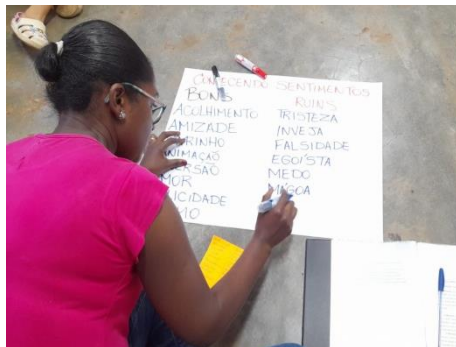 SENTIMENTOS
BONS
ACOLHIMENTO
AMIZADE
RINHO
NIMAÇÃO
ERSÃO
MOR
ICIDADE
MO
RUINS
TRISTEZA
INVEJA
FALSIDADE
EGOISTA
MEDO
MÁGOA